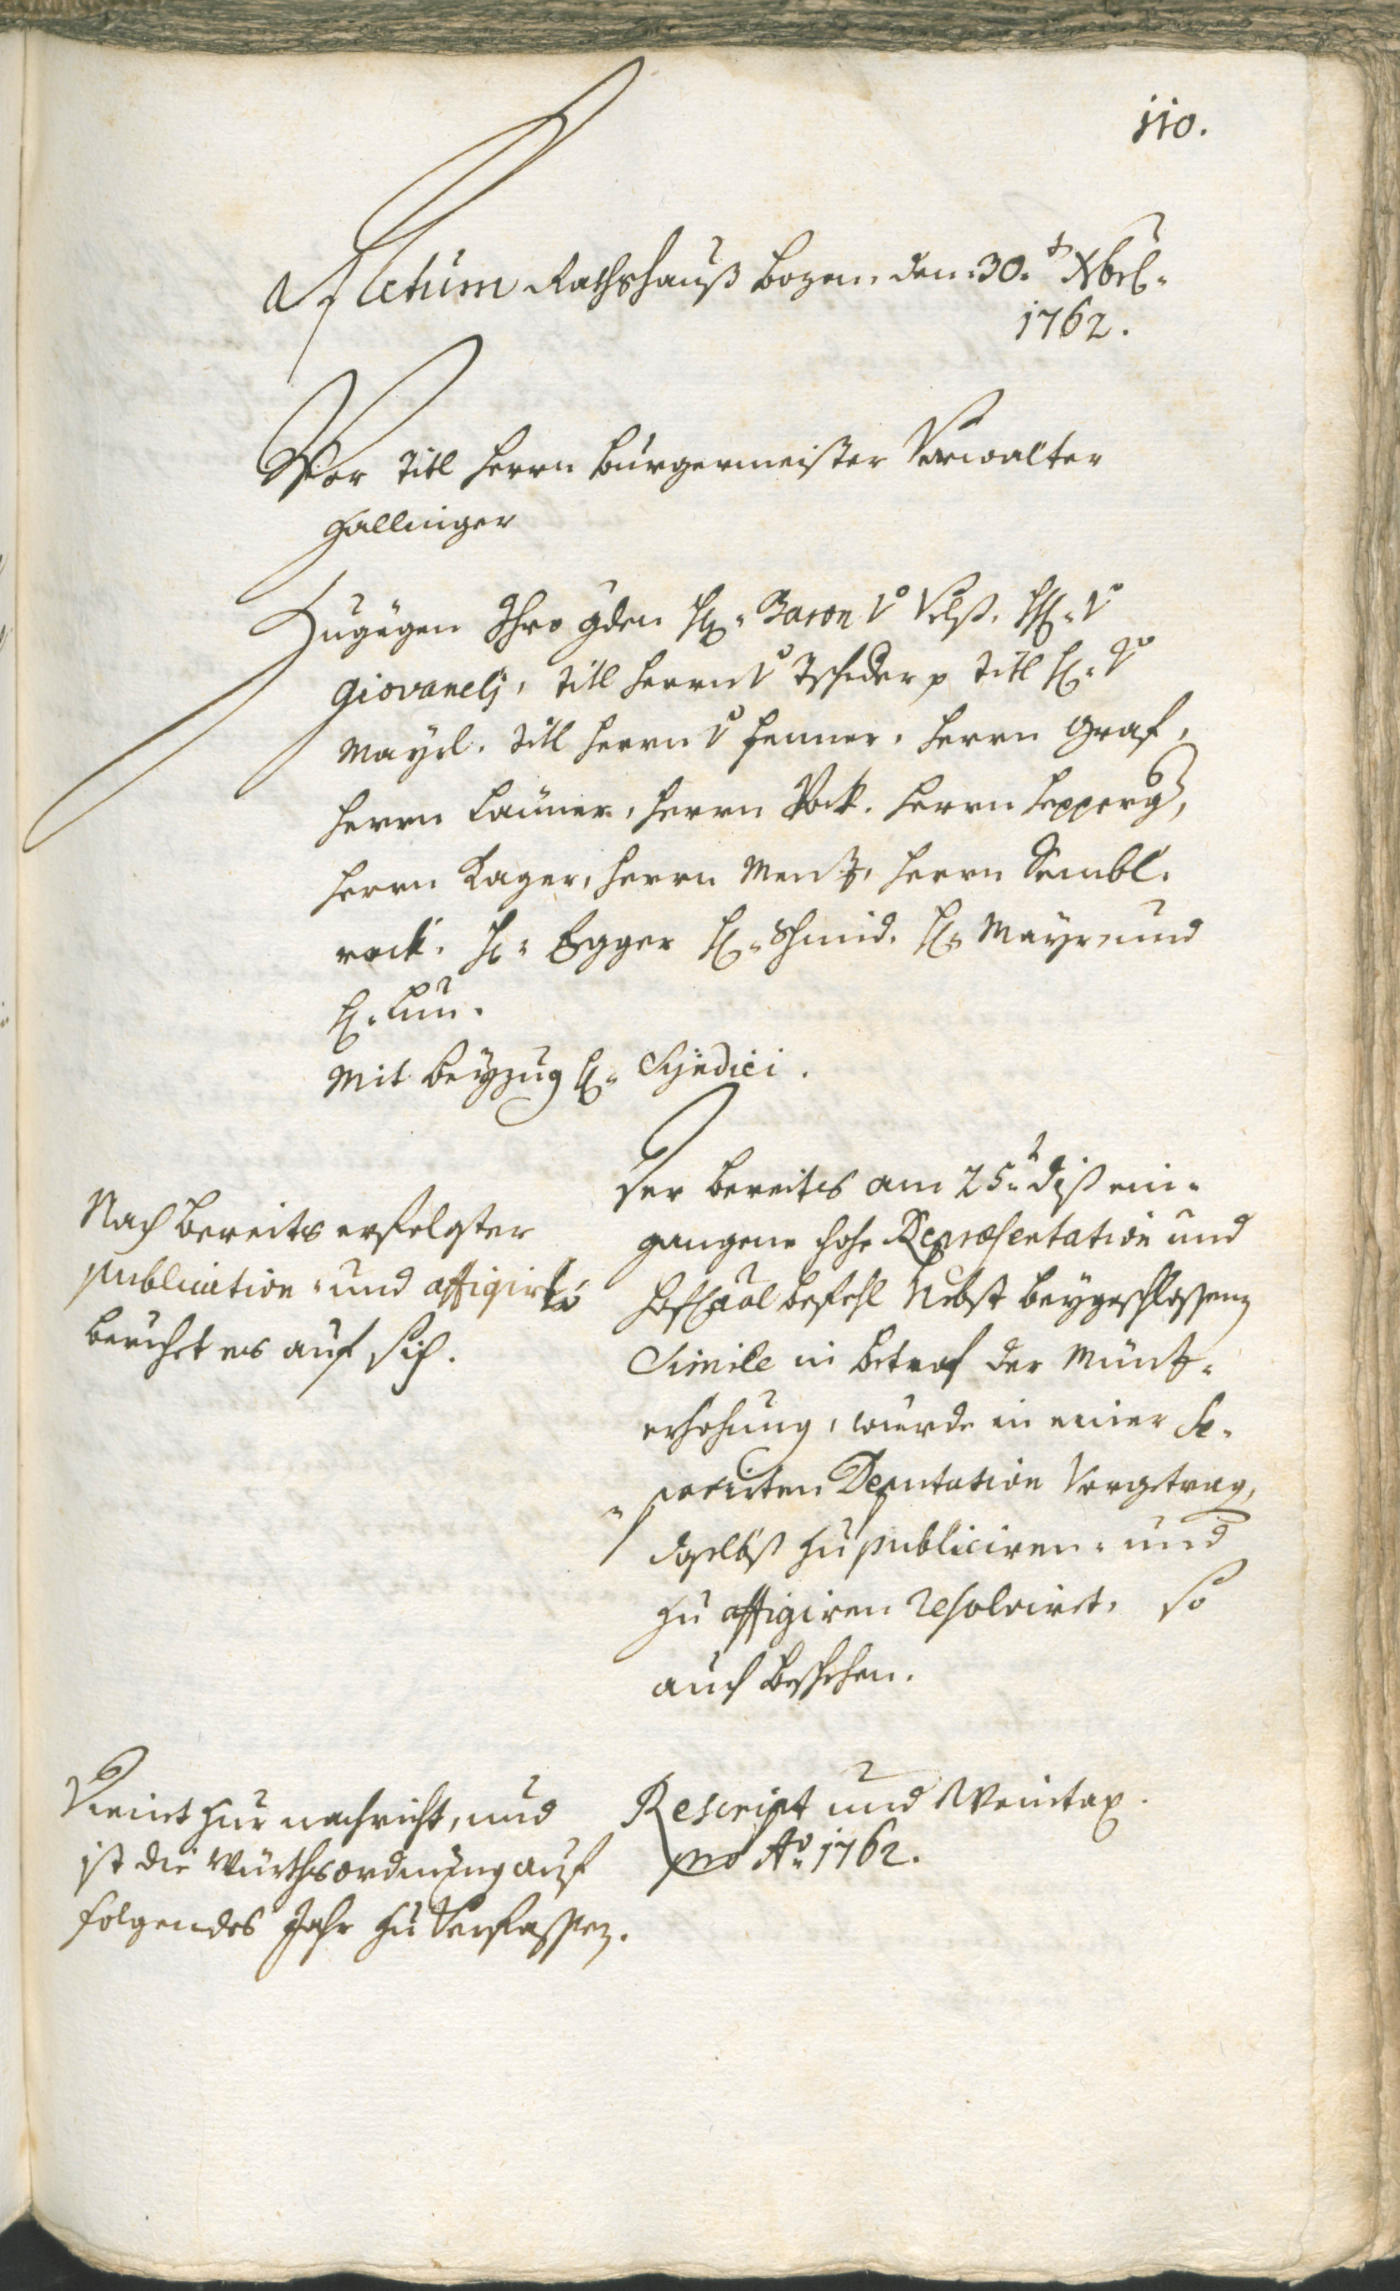 110.
Actum Rathshauß Bozen den 30.t Xbris
1762.
Vor Titl Herrn Burgermeister Verwalter
Gallinger
Zugegen Ihro Gden H: Baron v Velß. H: v
Giovanelj, Titl Herrn v Tschider p Titl H: v
Mayrl. Titl Herrn v Fenner. Herrn Graf,
Herrn Launer, Herrn Pock. Herrn Hepperg,
Herrn Kager, Herrn Menz, Herrn Sembl.
rock. H: Egger H: Schmid. H: Mayr, und
H: Lun.
Mit beyzug H: Syndici.
Nach bereits erfolgter
publication- und affigirung
beruhet es auf sich.
Der bereits am 25.t diß ein-
gangene hohe Repræsentation und
Befehl Nebst beygeschlossenen
Simile in betref der Münz-
erhöhung, wurde in einer Se-
pariten Deputation Vorgetragen,
daselbst zu publiciren- und
zu affigiren resolvirt, so
auch beschehen.
Dienet zur nachricht, und
ist die Würthsordnung auf
folgendes Jahr zu Verfassen.
Rescript und Weintax.
pro Ao 1762.